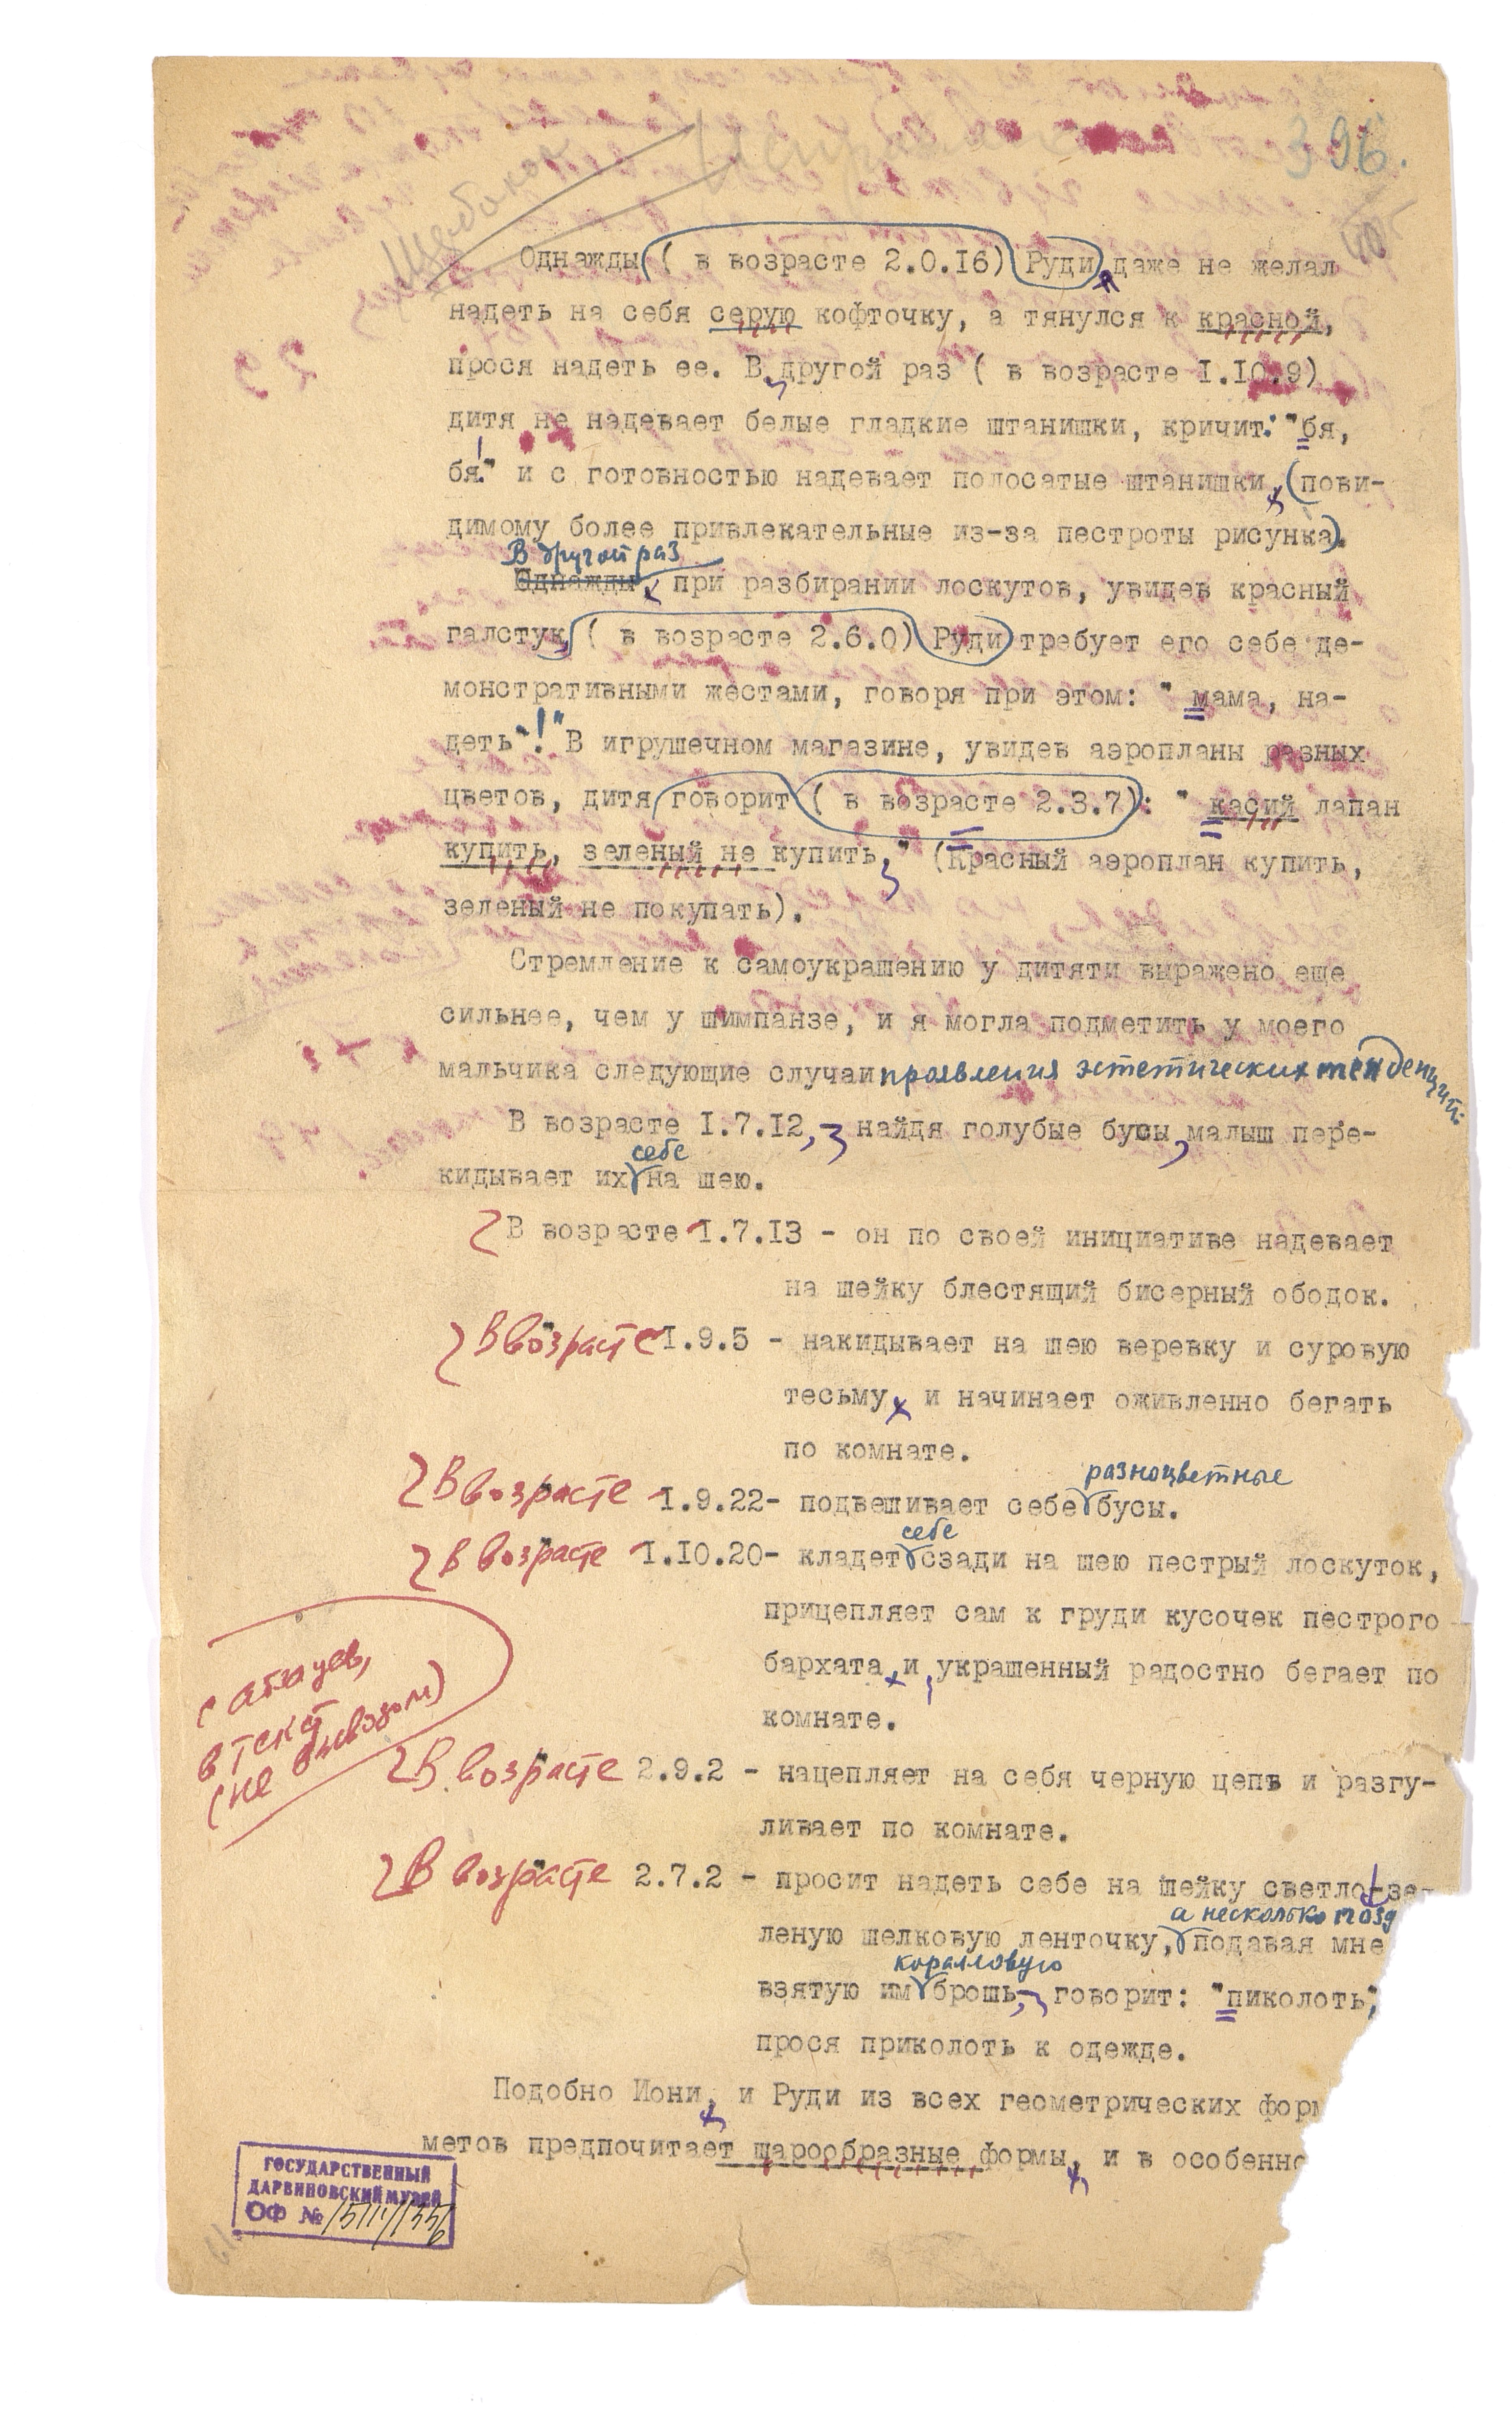 396.
Однажды ( в возрасте 2.0.16) Руди, даже не желал
надеть на себя серую кофточку, а тянулся к красной,
прося надеть ее. В другой раз ( в возрасте 1.10.9)
дитя не надевает белые гладкие штанишки, кричит: "бя,
бя!" и с готовностью надевает полосатые штанишки, (пови-
димому более привлекательные из-за пестроты рисунка).
В другой раз
Однажды, при разбирании лоскутов, увидев красный
галстук, ( в возрасте 2.6.0) Руди требует его себе де-
монстративными жестами, говоря при этом: " мама, на-
деть"!" В игрушечном магазине, увидев аэропланы разных
цветов, дитя говорит ( в возрасте 2.3.7): " касий лапан
купить, зеленый не купить," (Красный аэроплан купить,
зеленый не покупать).
Стремление к самоукрашению у дитяти выражено еще
сильнее, чем у шимпанзе, и я могла подметить у моего
мальчика следующие случаи проявления эстетических тенденций:
В возрасте 1.7.12, найдя голубые бусы, малыш пере-
себе
кидывает их на шею.
В возрасте 1.7.13 - он по своей инициативе надевает
на шейку блестящий бисерный ободок.
В возрасте 1.9.5 - накидывает на шею веревку и суровую
тесьму, и начинает оживленно бегать
по комнате.
разноцветные
В возрасте 1.9.22- подвешивает себе бусы.
себе
В возрасте 1.10.20- кладет сзади на шею пестрый лоскуток,
прицепляет сам к груди кусочек пестрого
бархата, и, украшенный радостно бегает по
комнате.
(абзацев,
в текст
(не выводом)
В возрасте 2.9.2 - нацепляет на себя черную цепь и разгу-
ливает по комнате.
В возрасте 2.7.2 - просит надеть себе на шейку светло-зе-
а несколько позд
леную шелковую ленточку, подавая мне
коралловую
взятую им брошь, говорит: "пиколоть",
прося приколоть к одежде.
Подобно Иони, и Руди из всех геометрических форм
метов предпочитает шарообразные формы, и в особенно
ГОСУДАРСТВЕННЫЙ
ДАРВИНОВСКИЙ МУЗЕЙ
ОФ №